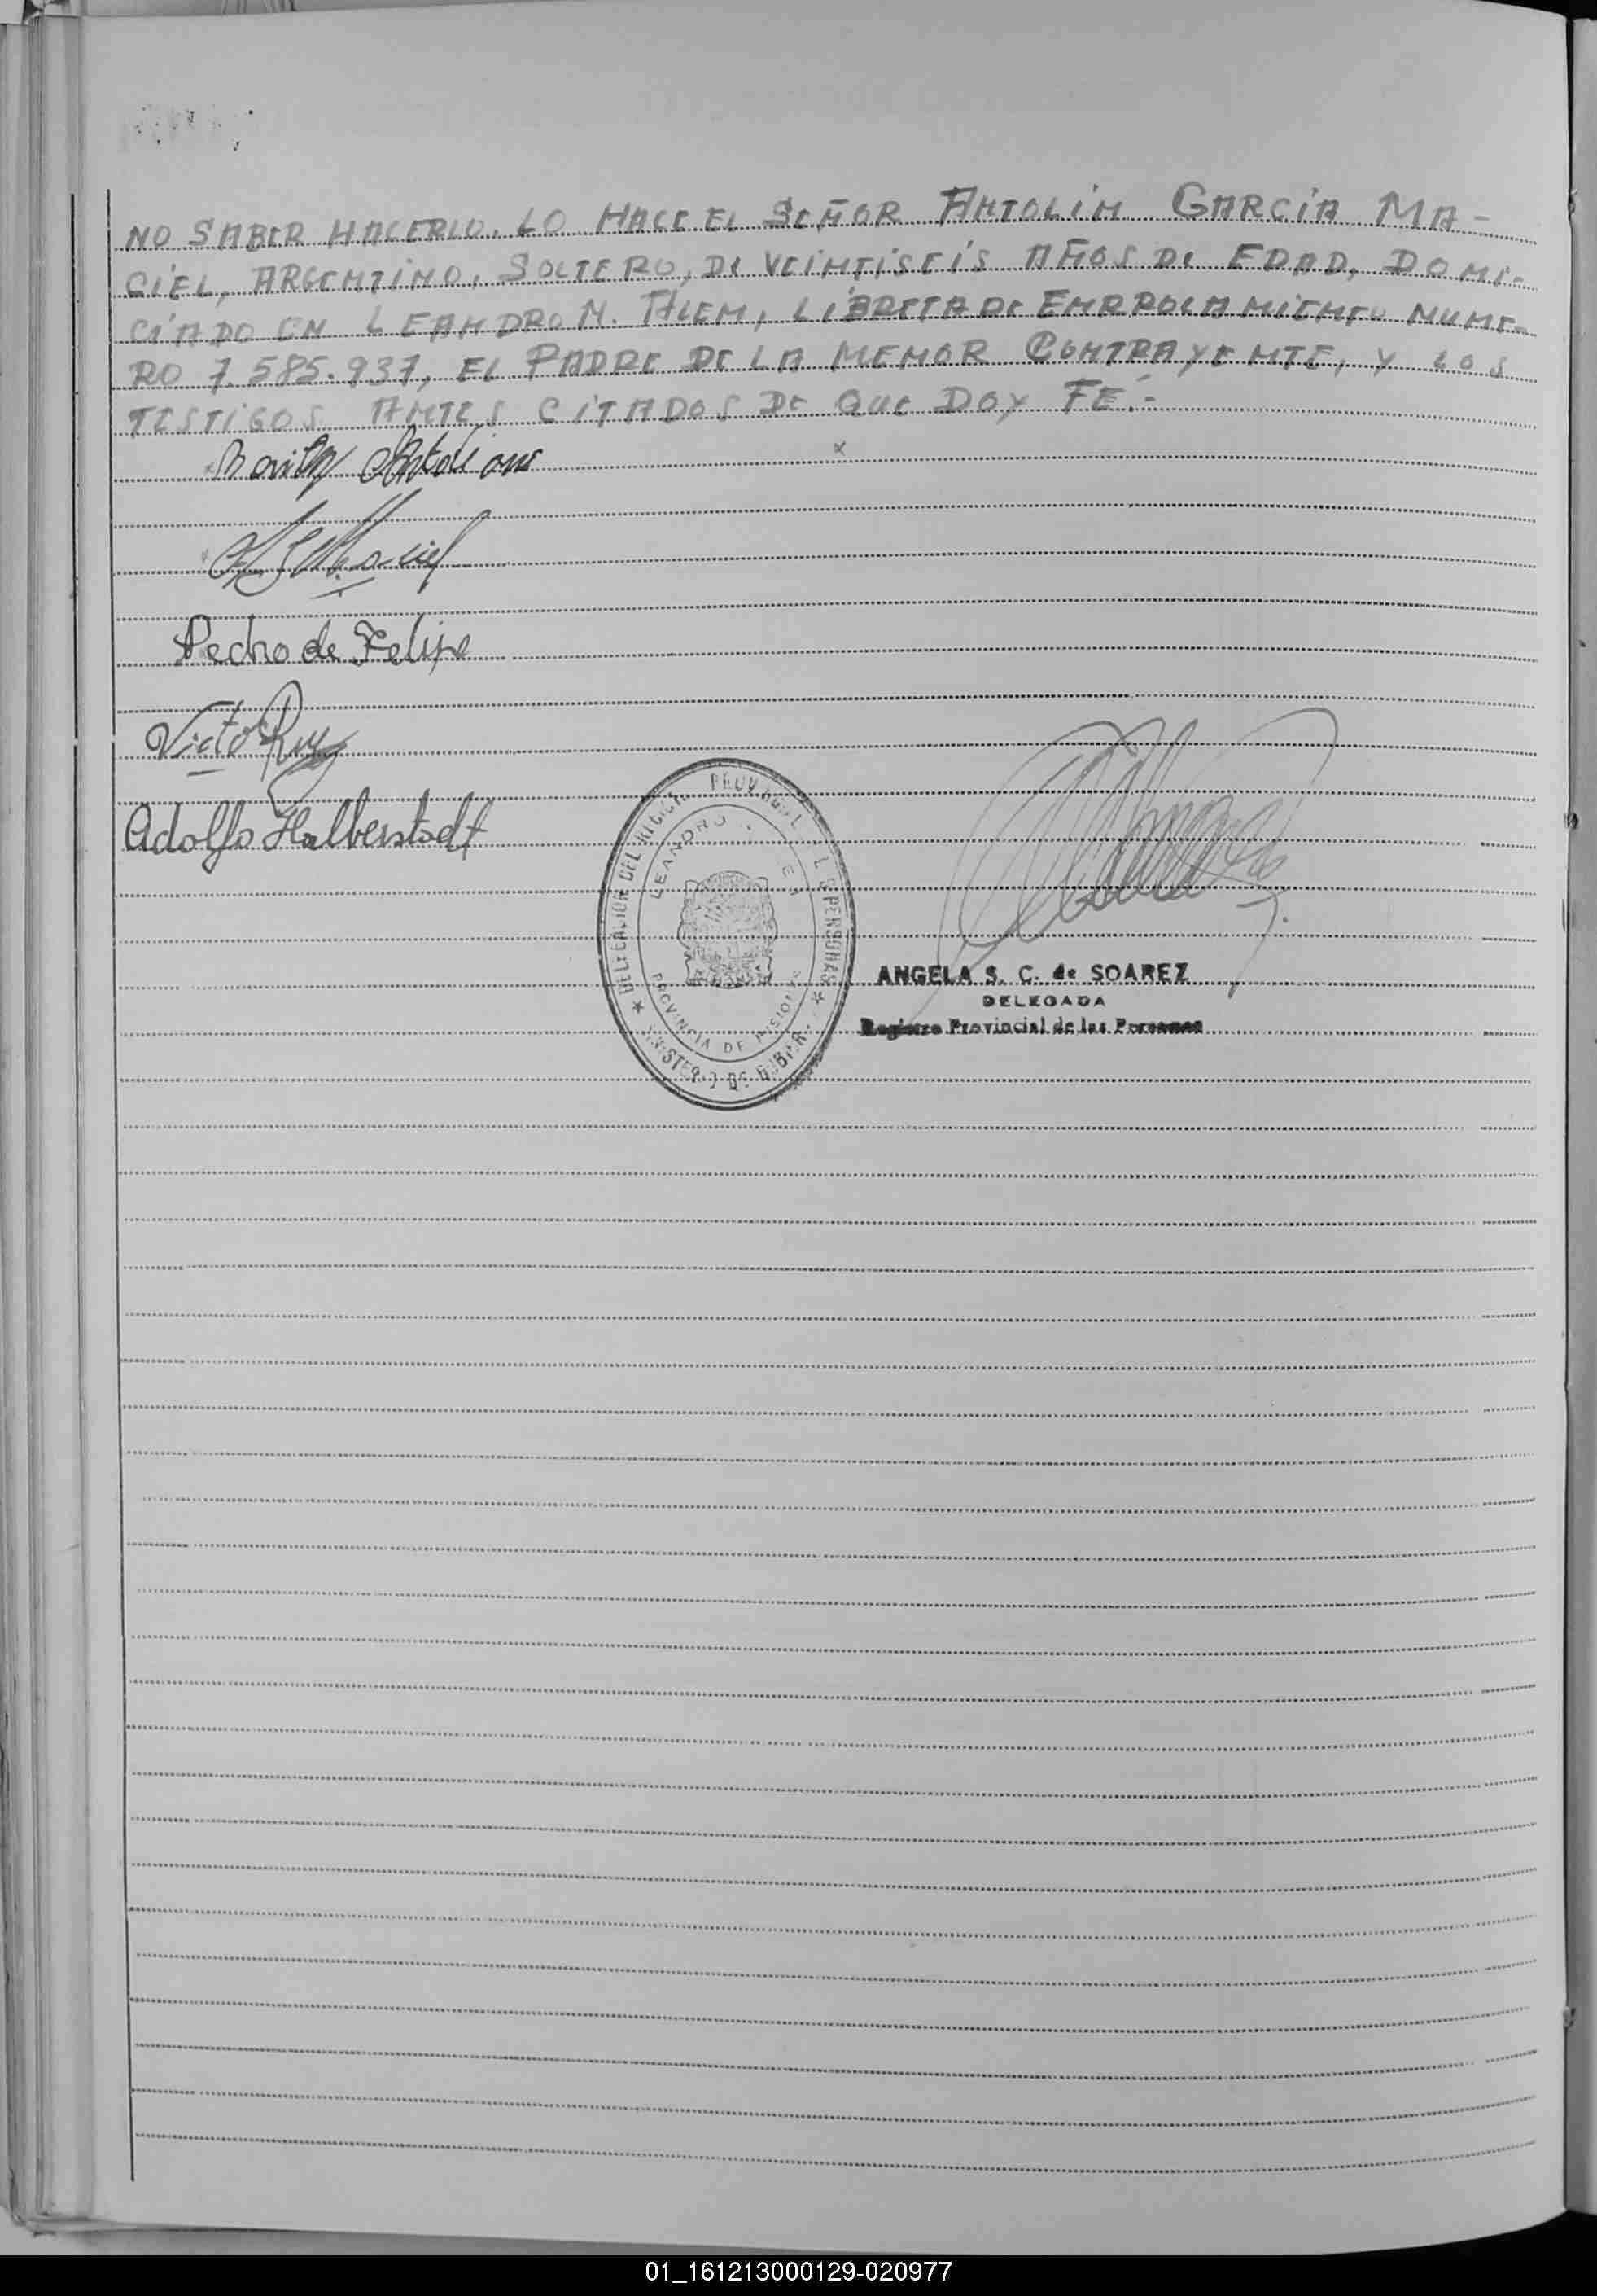 NO SABER HACERLO. LO HACE EL SEÑOR ANTOLIN GARCÍA MA-
CIEL, ARGENTINO, SOLTERO, DE VEINTISEIS AÑOS DE EDAD, DOMI-
CIADO EN LEANDRO N. ALEM, LIBRETA DE ENRROLAMIENTO NUME-
RO 7.585.937, EL PADRE DE LA MENOR CONTRAYENTE, Y LOS
TESTIGOS ANTES CITADOS DE QUE DOY FE.-
Pedro de Felipe
Victo Ruy
Adolfo Halberstadt
DELEGACION DEL REGISTRO PROVINCIAL DE LAS PERSONAS
LEANDRO N. ALEM
PROVINCIA DE MISIONES
MINISTERIO DE GOBIERNO
ANGELA S. C. de SOAREZ
DELEGADA
Registro Provincial de las Personas
01_161213000129-020977